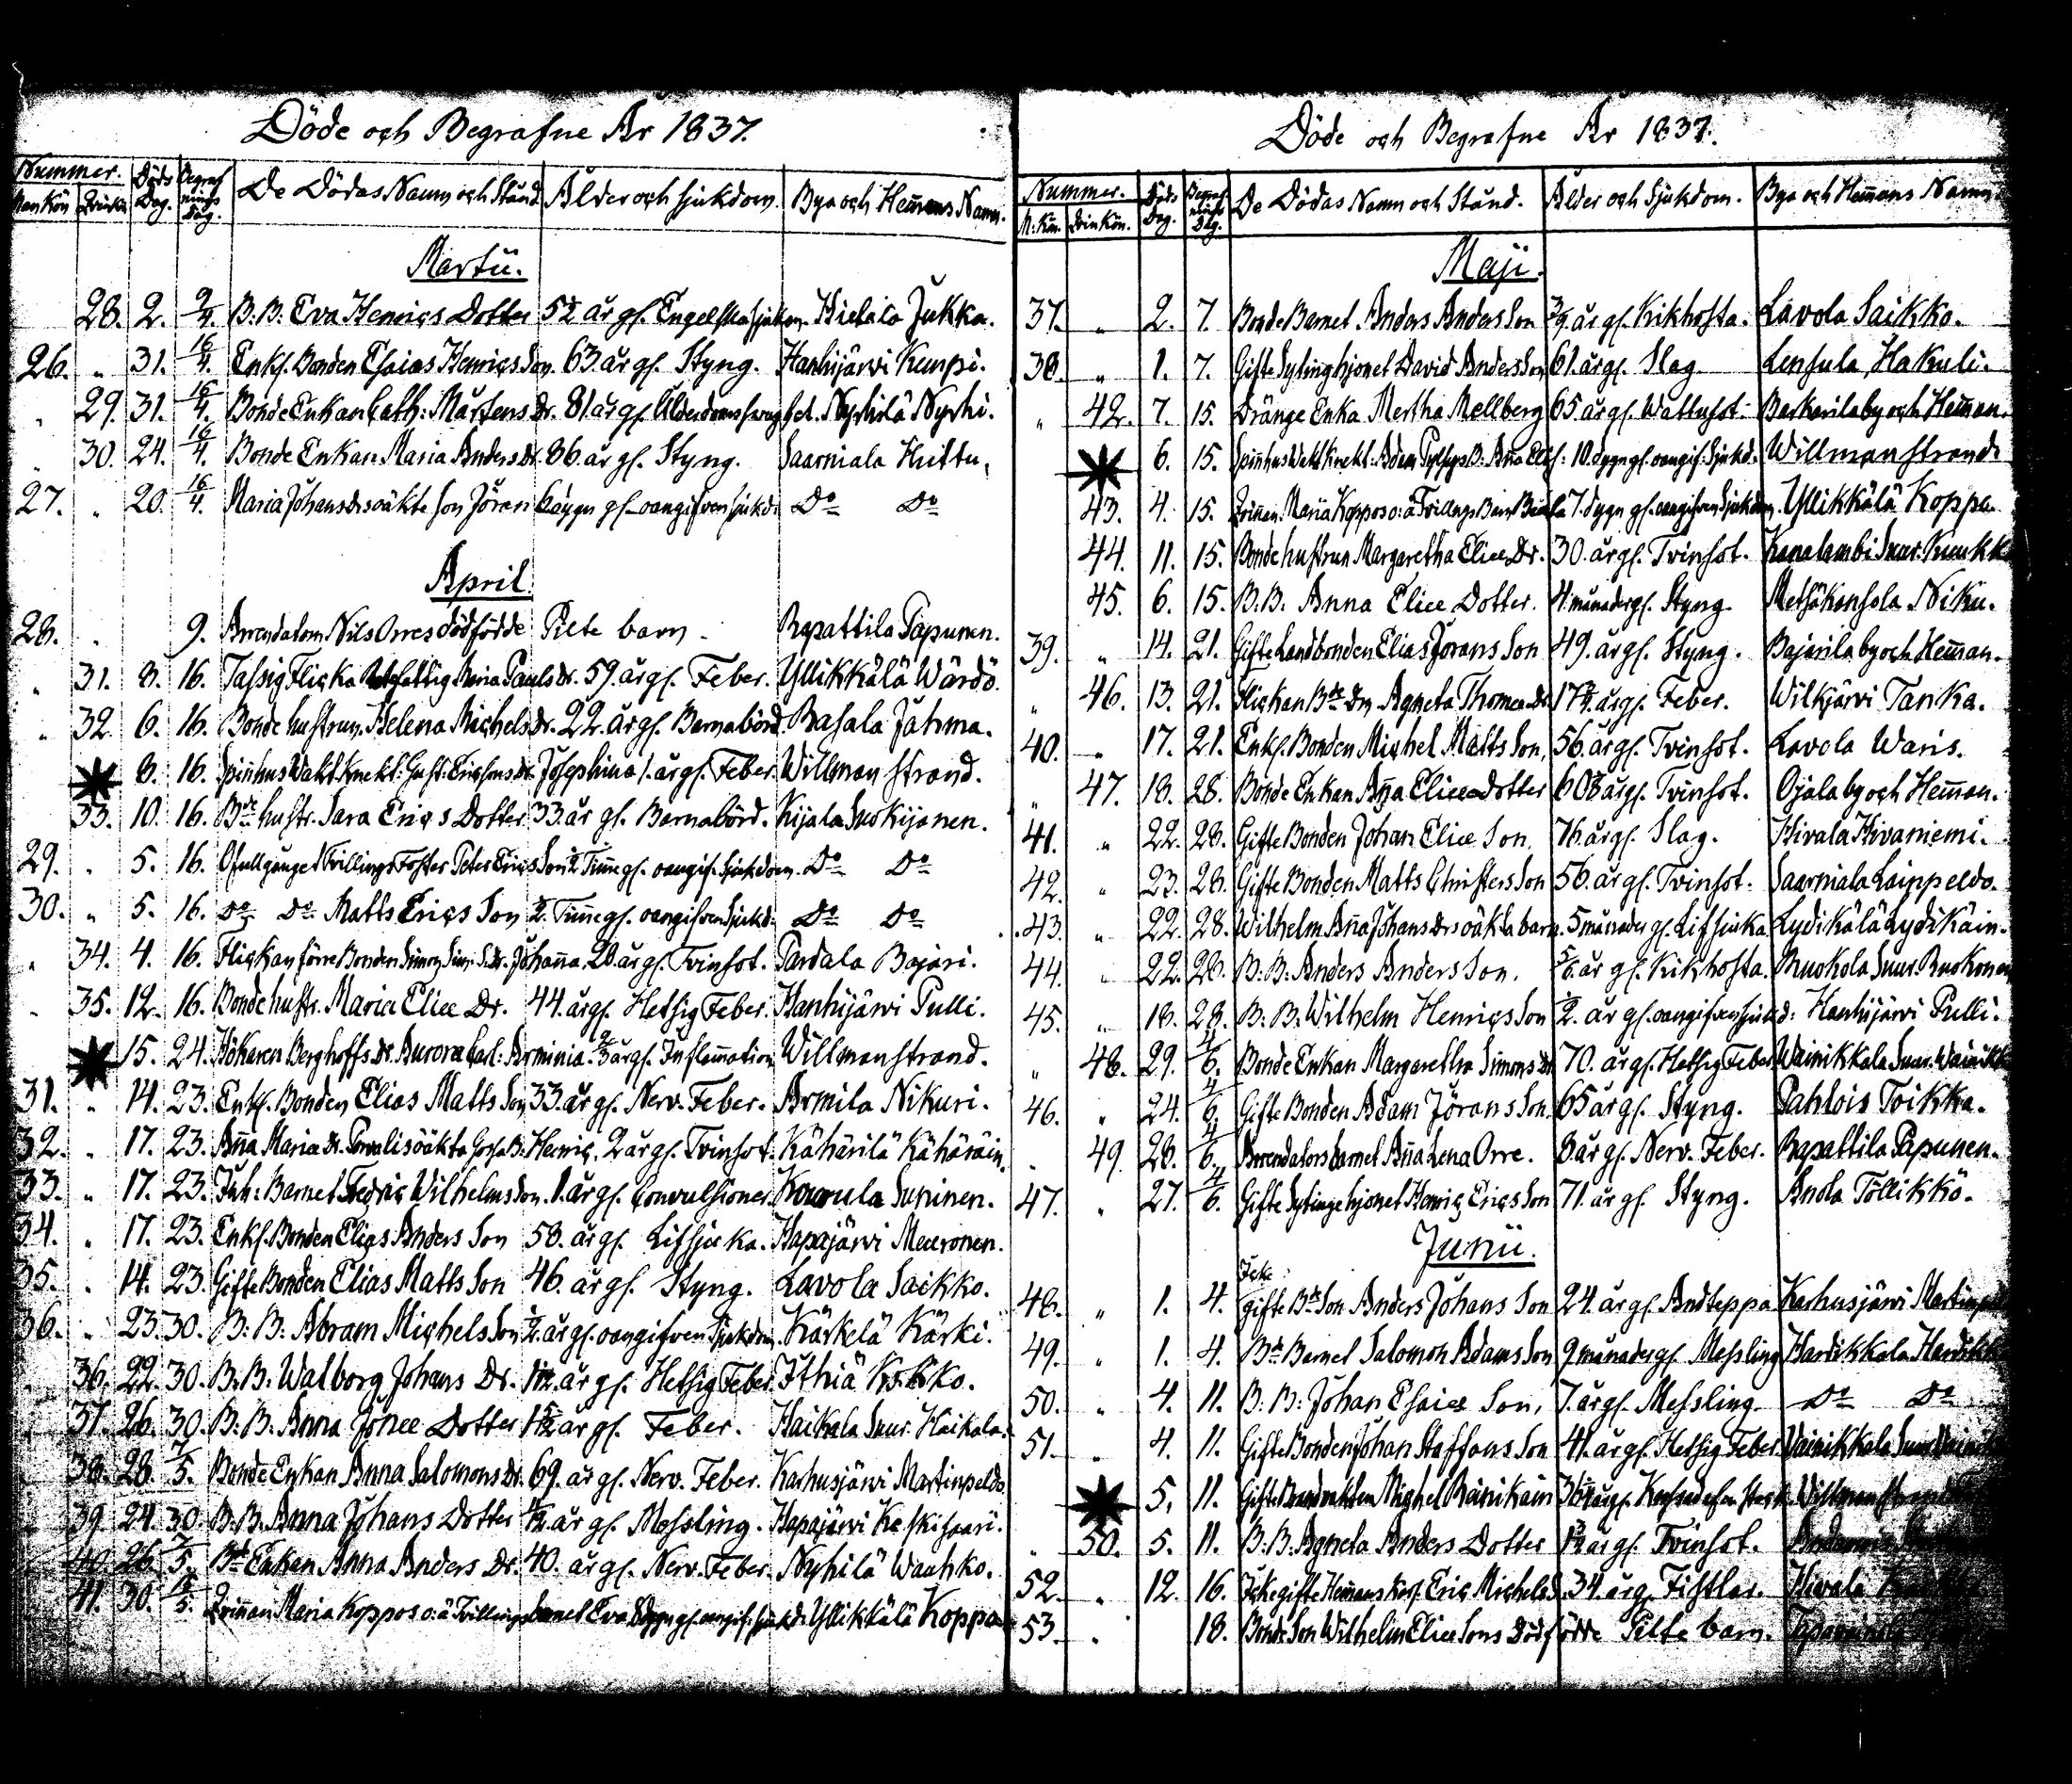 Döde och Begrafne År 1837.
Nummer. Döds Dag. Begrafnings Dag. De Dödas Namn och Stånd Ålder och Sjukdom. Bya och Hem̄ans Namn.
Mankön Qvinkön
Martii.
28. 2. 2/4. B. B. Eva Henrics Dotter 5½ år gl. Engelska sjukan. Hietala Jukka.
26. " 31. 16/4. Enkl. Bonden Esaias Henrics Son 63 år gl. Styng. Hanhijärvi Kunpi.
" 29. 31. 16/4. Bonde Enkan Cath. Mårtens Dr. 81. år gl. Ålderdoms Nyhilä Nyhi.
" 30. 24. 16/4. Bonde Enkan Maria Anders Dr. 86 år gl. Styng. Saarniala Huttu.
27. " 20. 16/4. Maria Johans Drs oäkta Son Jöran dygn gl. oangifven sjukd. Do Do
April
28. . 9. Arrendatorn Nils Orres dödfödde Pilte barn. Rapattila Papunen.
" 31. 8. 16. Flicka Maria Pauls Dr. 59. år gl. Feber. Yllikkälä Wårdö.
" 32 6. 16. Bonde hustrun Helena Michels Dr. 22. år gl. Barnabörd Rasala Jahma.
8. 16. Spinhus Wakt Knekt. Gust. Ericsons Dr. Josephina 1. år gl. Feber. Willmanstrand.
33. 10. 16. Bde hustr. Sara Erics Dotter 33. år gl. Barnabörd. Kijala Suokijanen.
29. " 5. 16. Ofullgånget Trillings Foster Peter Erics Son ½ Tim̄e gl. oangif. Sjukdom. Do Do
30. " 5. 16. Do Do Matts Erics Son ½ Tim̄e gl. oangifven Sjukd. Do Do
" 34. 4. 16. Flickan förre Bonden Simon Sim: S. Dr. Johan̄a 20 år gl. Tvinsot. Partala Bajari.
" 35. 12. 16. Bonde hustr. Maria Eliæ Dr. 44. år gl. Hetsig Feber. Hanhijärvi Pulli.
15. 24. Hökaren Berghoffs Dr. Aurora Carl: Arminia år gl. Inflammation Willmanstrand.
31. " 14. 23. Enkl. Bonden Elias Matts Son 33. år gl. Nerv. Feber. Armila Nikuri.
32. " 17. 23. An̄a Maria Dr. oäkta B: Henric. 2 år gl. Tvinsot. Kähärilä Kähäräin.
33. " 17. 23. Inh: Barnet Fredric Wilhelms Son. 1. år gl. Convulsioner. Kourula Suninen.
34. " 17. 23. Enkl. Bonden Elias Anders Son 58. år gl. Lifsjuka. Hapajärvi Meuronen.
35. . 14. 23. Gifte Bonden Elias Matts Son 46. år gl. Styng. Lavola Saikko.
36. " 23. 30. B: B. Abram Michels Son ½ år gl. oangifven Sjukdom. Kärkelä Kärki.
. 36. 22. 30. B. B. Walborg Johans Dr. år gl. Hetsig Feber. Ithiä Kokko.
. 37. 26. 30. B. B. Anna Jonæ Dotter år gl. Feber. Haikala Suur Haikala.
. 38. 28. 7/5. Bonde Enkan Anna Salomons Dr. 69. år gl. Nerv. Feber. Karhusjärvi Martinpeldo.
39 24. 30. B. B. Anna Johans Dotter år gl. Messling. Hapajärvi Keskisaari.
40. 26. 7/5. Bd. Enkan Anna Anders Dr. 40. år gl. Nerv. Feber. Nyhilä Waahko.
41. 30. Qvinan Maria Koppos o:ä Trillings barnet Eva dygn gl. oangif. sjukd. Yllikkälä Koppa
Döde och Begrafne År 1837.
Nummer. Döds Dag. Begrafnings Dag. De Dödas Namn och Stånd. Ålder och Sjukdom. Bya och Hem̄ans Namn
M. kön. Qvinkön.
Maji.
37. " 2. 7. Bonde Barnet Anders Anders Son år gl. Kikhosta. Lavola Saikko.
38. " 1. 7. Gifte Sytinghjonet David Anders Son 61. år gl. Slag Lensula Hakuli.
" 42. 7. 15. Dränge Enka Mertha Mellberg 65. år gl. Wattusot. Baskarila by och Hem̄an.
6. 15. Spinhus Wakt Knekt: Adam B: An̄a Elis: 10. dygn gl. oangif: Sjukd. Willmanstrand
43. 4. 15. Qvinan Maria Koppos o:ä Trillings Barn 7. dygn gl. oangifven Sjukdom. Yllikkälä Koppa.
44. 11. 15. Bonde hustrun Margaretha Eliæ Dr. 30. år gl. Tvinsot. Kanalambi Suur. Kuukk
45. 6. 15. B. B. Anna Eliæ Dotter. 4 månader gl. Styng. Metsäkansola Niku.
39. " 14. 21. Gifte Landbonden Elias Jörans Son 49. år gl. Styng. Bajarila by och Hem̄an.
" 46. 13. 21. Flickan Bde Dr. Agneta Thomæ Dr. år gl. Feber. Wilkjärvi Tanka.
40. " 17. 21. Enkl. Bonden Michel Matts Son, 56. år gl. Tvinsot. Lavola Waris.
" 47. 18. 28. Bonde Enkan An̄a Eliæ Dotter år gl. Tvinsot. Ojala by och Hem̄an.
41. " 22. 28. Gifte Bonden Johan Eliæ Son, 76. år gl. Slag. Hivala Hivaniemi.
42. " 23. 28. Gifte Bonden Matts Christers Son 56. år gl. Tvinsot. Saarniala Laippeldo.
43. " 22. 28. Wilhelm An̄a Johans Drs oäkta barn. 5 månader gl. Lifsjuka Lydikälä Lydikäin.
44. " 22. 28. B. B: Anders Anders Son. år gl. Kikhosta. Ruokola Suur. Ruokonen
45. " 18. 28. B. B: Wilhelm Henrics Son ½. år gl. oangifven sjukd: Hanhijärvi Pulli.
" 48. 29. 4/6. Bonde Enkan Margaretha Simons Dr 70. år gl. Hetsig Feber Wainikkala Suur. Wainikka
46. " 24. 4/6. Gifte Bonden Adam Jörans Son 65 år gl. Styng. Pahlois Toikka.
. 49. 28. 4/6. Arrendators barnet An̄a Lena Orre. 8 år gl. Nerv. Feber. Rapattila Papunen.
47. " 27. 4/6. Gifte Sytinge hjonet Henric Erics Son 71. år gl. Styng. Anola Töllikkö.
Junii.
48. " 1. 4. Icke gifte Bde Son Anders Johans Son 24. år gl. Andteppa Karhusjärvi Martinpeldo
49. " 1. 4. Bd. Barnet Salomon Adams Son 9 månader gl. Messling Hardikkala Hardikk
50. " 4. 11. B: B: Johan Esaiæ Son, 7. år gl. Messling. Do Do
51. " 4. 11. Gifte Bonden Johan Staffans Son 41. år gl. Hetsig Feber. Wainikkala Suur
5. 11. Gifte Brandvakten Michel Räinikäin år gl. Willmanstrand
" 50. 5. 11. B. B. Agneta Anders Dotter år gl. Tvinsot.
52. " 12. 16. Icke gifte Hem̄ans Karl Eric Michels S. 34. år gl. Fistlar. Hivala
53. " 18. Bonde Son Wilhelm Eliæ Sons Dödfödde Pilte barn.